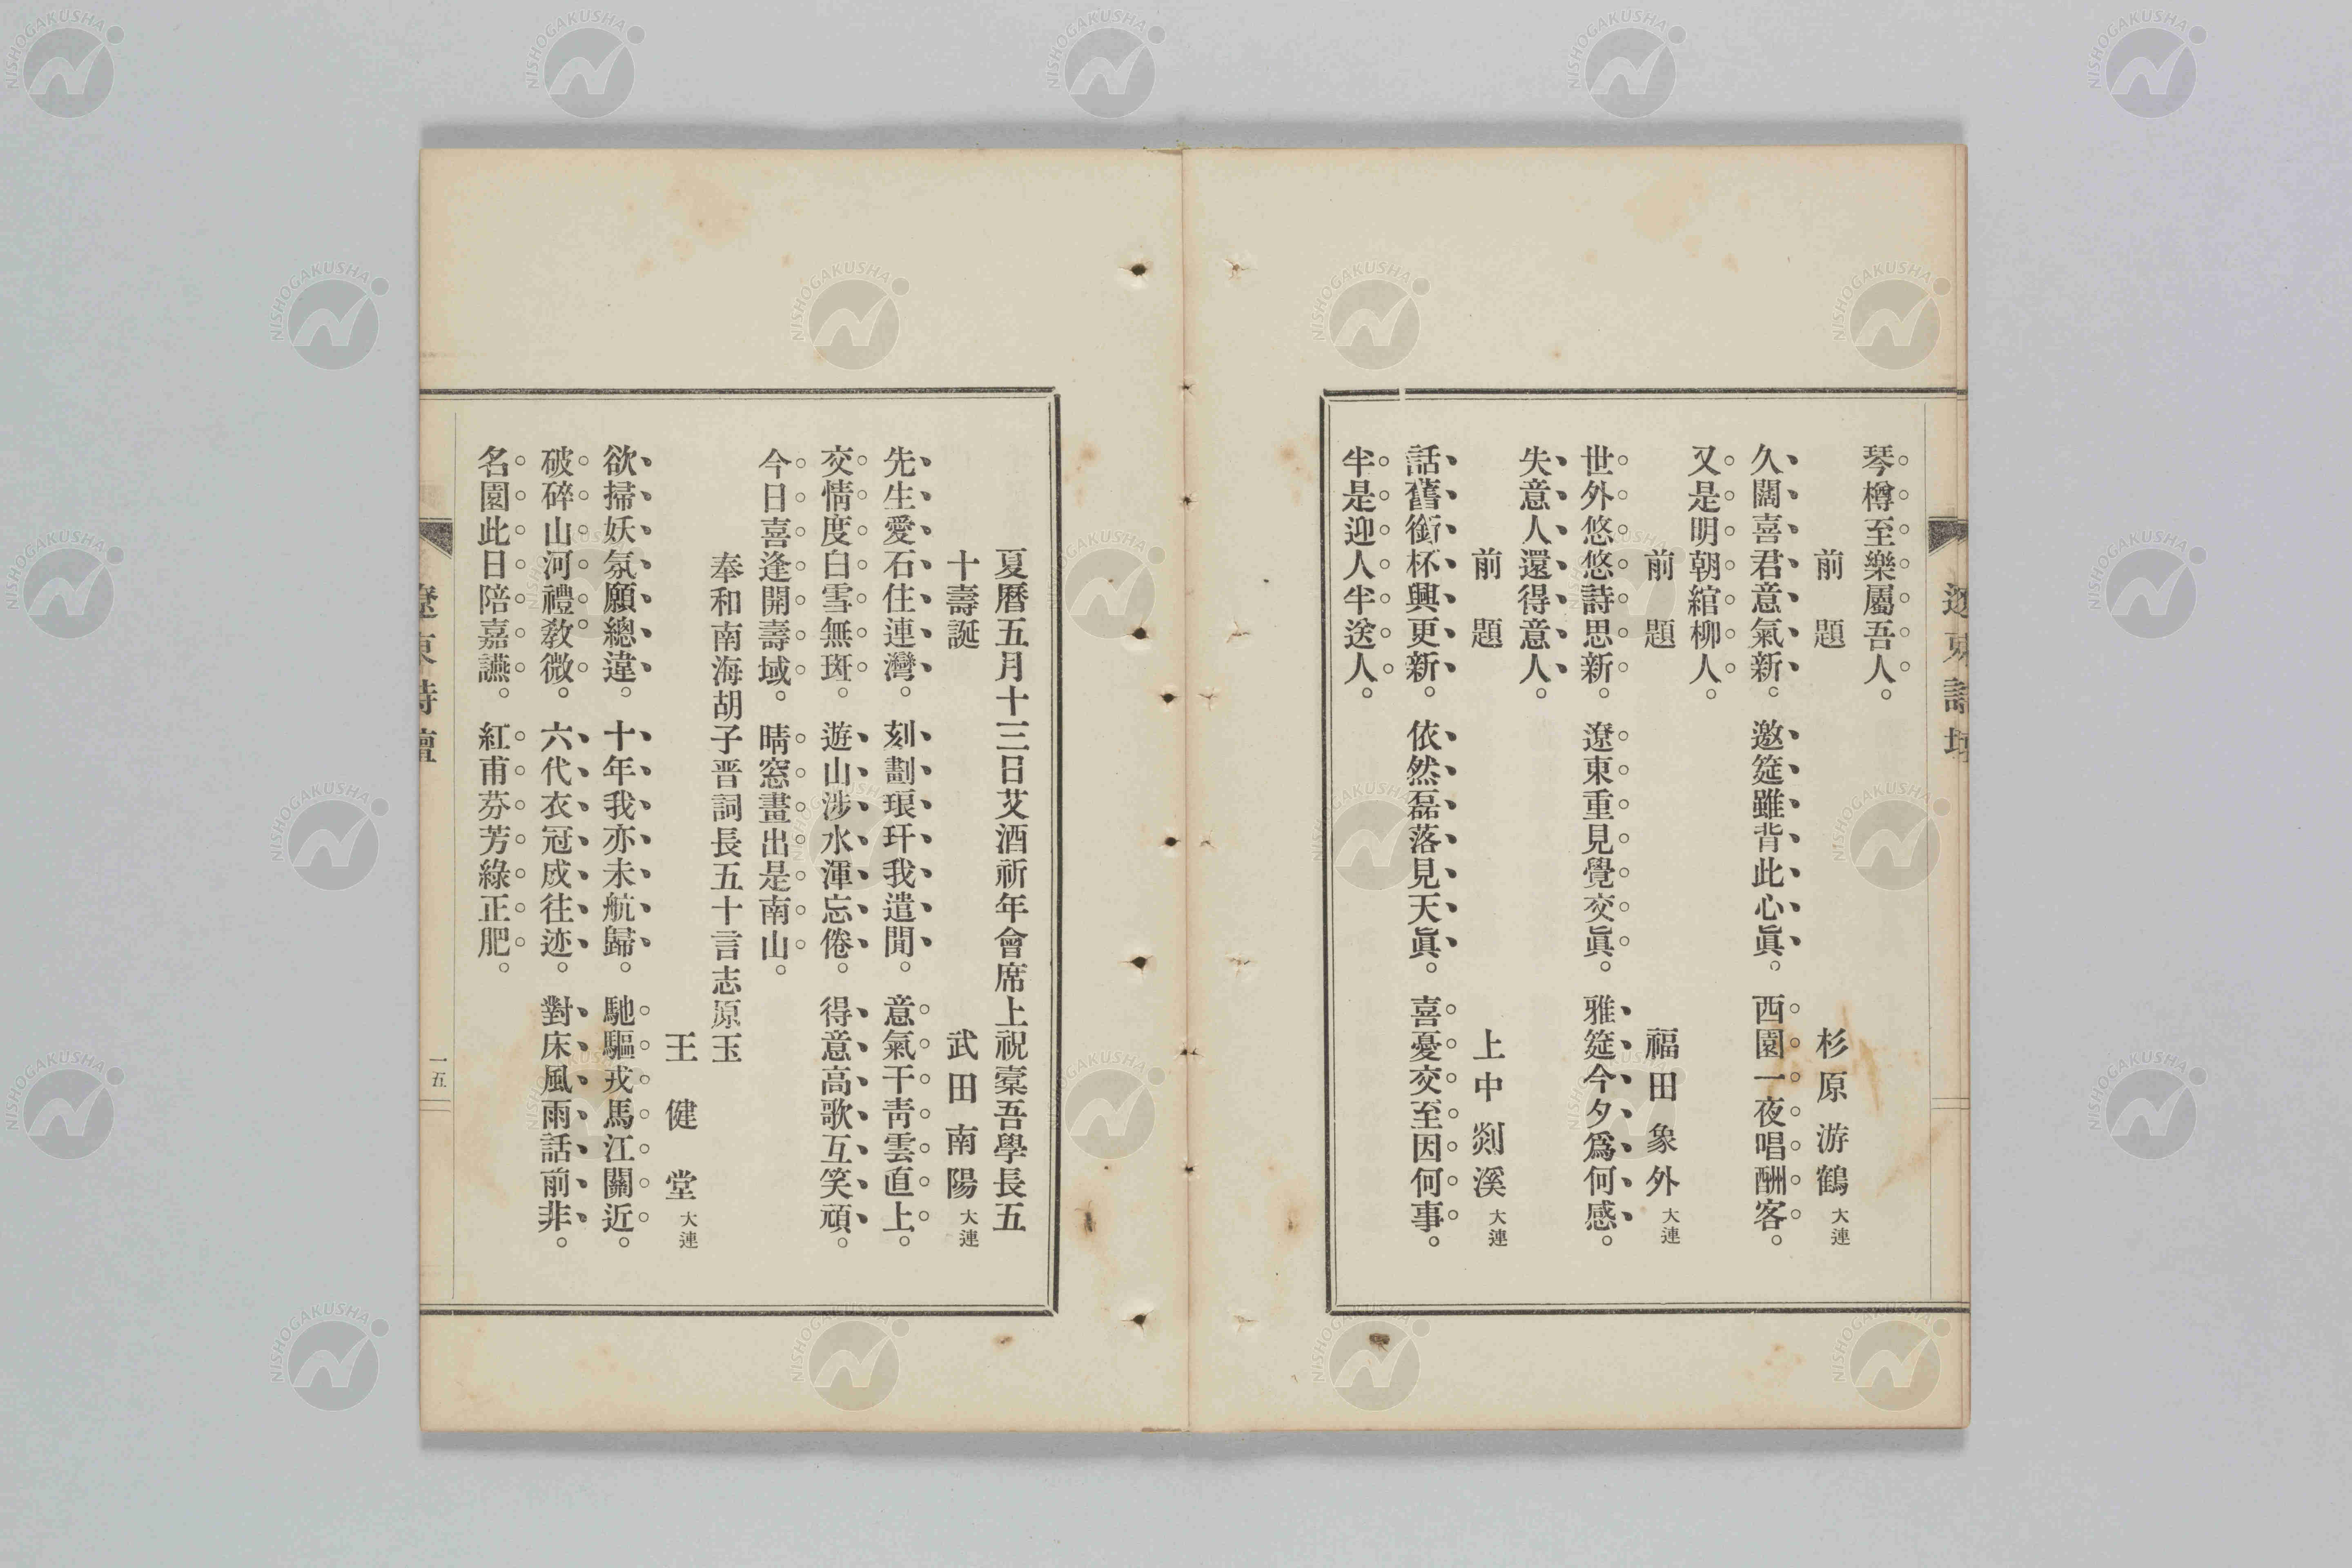 遼東詩壇
琴樽至樂屬吾人。
前題　杉原游鶴 大連
久闊喜君意氣新。邀筵雖背此心眞。西園一夜唱酬客。
又是明朝綰柳人。
前題　福田象外 大連
世外悠悠詩思新。遼東重見覺交眞。雅筵今夕爲何感。
失意人還得意人。
前題　上中剡溪 大連
話舊銜杯興更新。依然磊落見天眞。喜憂交至因何事。
半是迎人半送人。
夏曆五月十三日艾酒祈年會席上祝槖吾學長五
十壽誕　武田南陽 大連
先生愛石住連灣。刻劃琅玕我遣閒。意氣干靑雲直上。
交情度白雪無斑。遊山涉水渾忘倦。得意高歌互笑頑。
今日喜逢開壽域。晴窓畫出是南山。
奉和南海胡子晋詞長五十言志原玉
王健堂 大連
欲掃妖氛願總違。十年我亦未航歸。馳驅戎馬江關近。
破碎山河禮敎微。六代衣冠成往迹。對床風雨話前非。
名園此日陪嘉讌。紅甫芬芳綠正肥。
遼東詩壇
一五
NISHOGAKUSHA